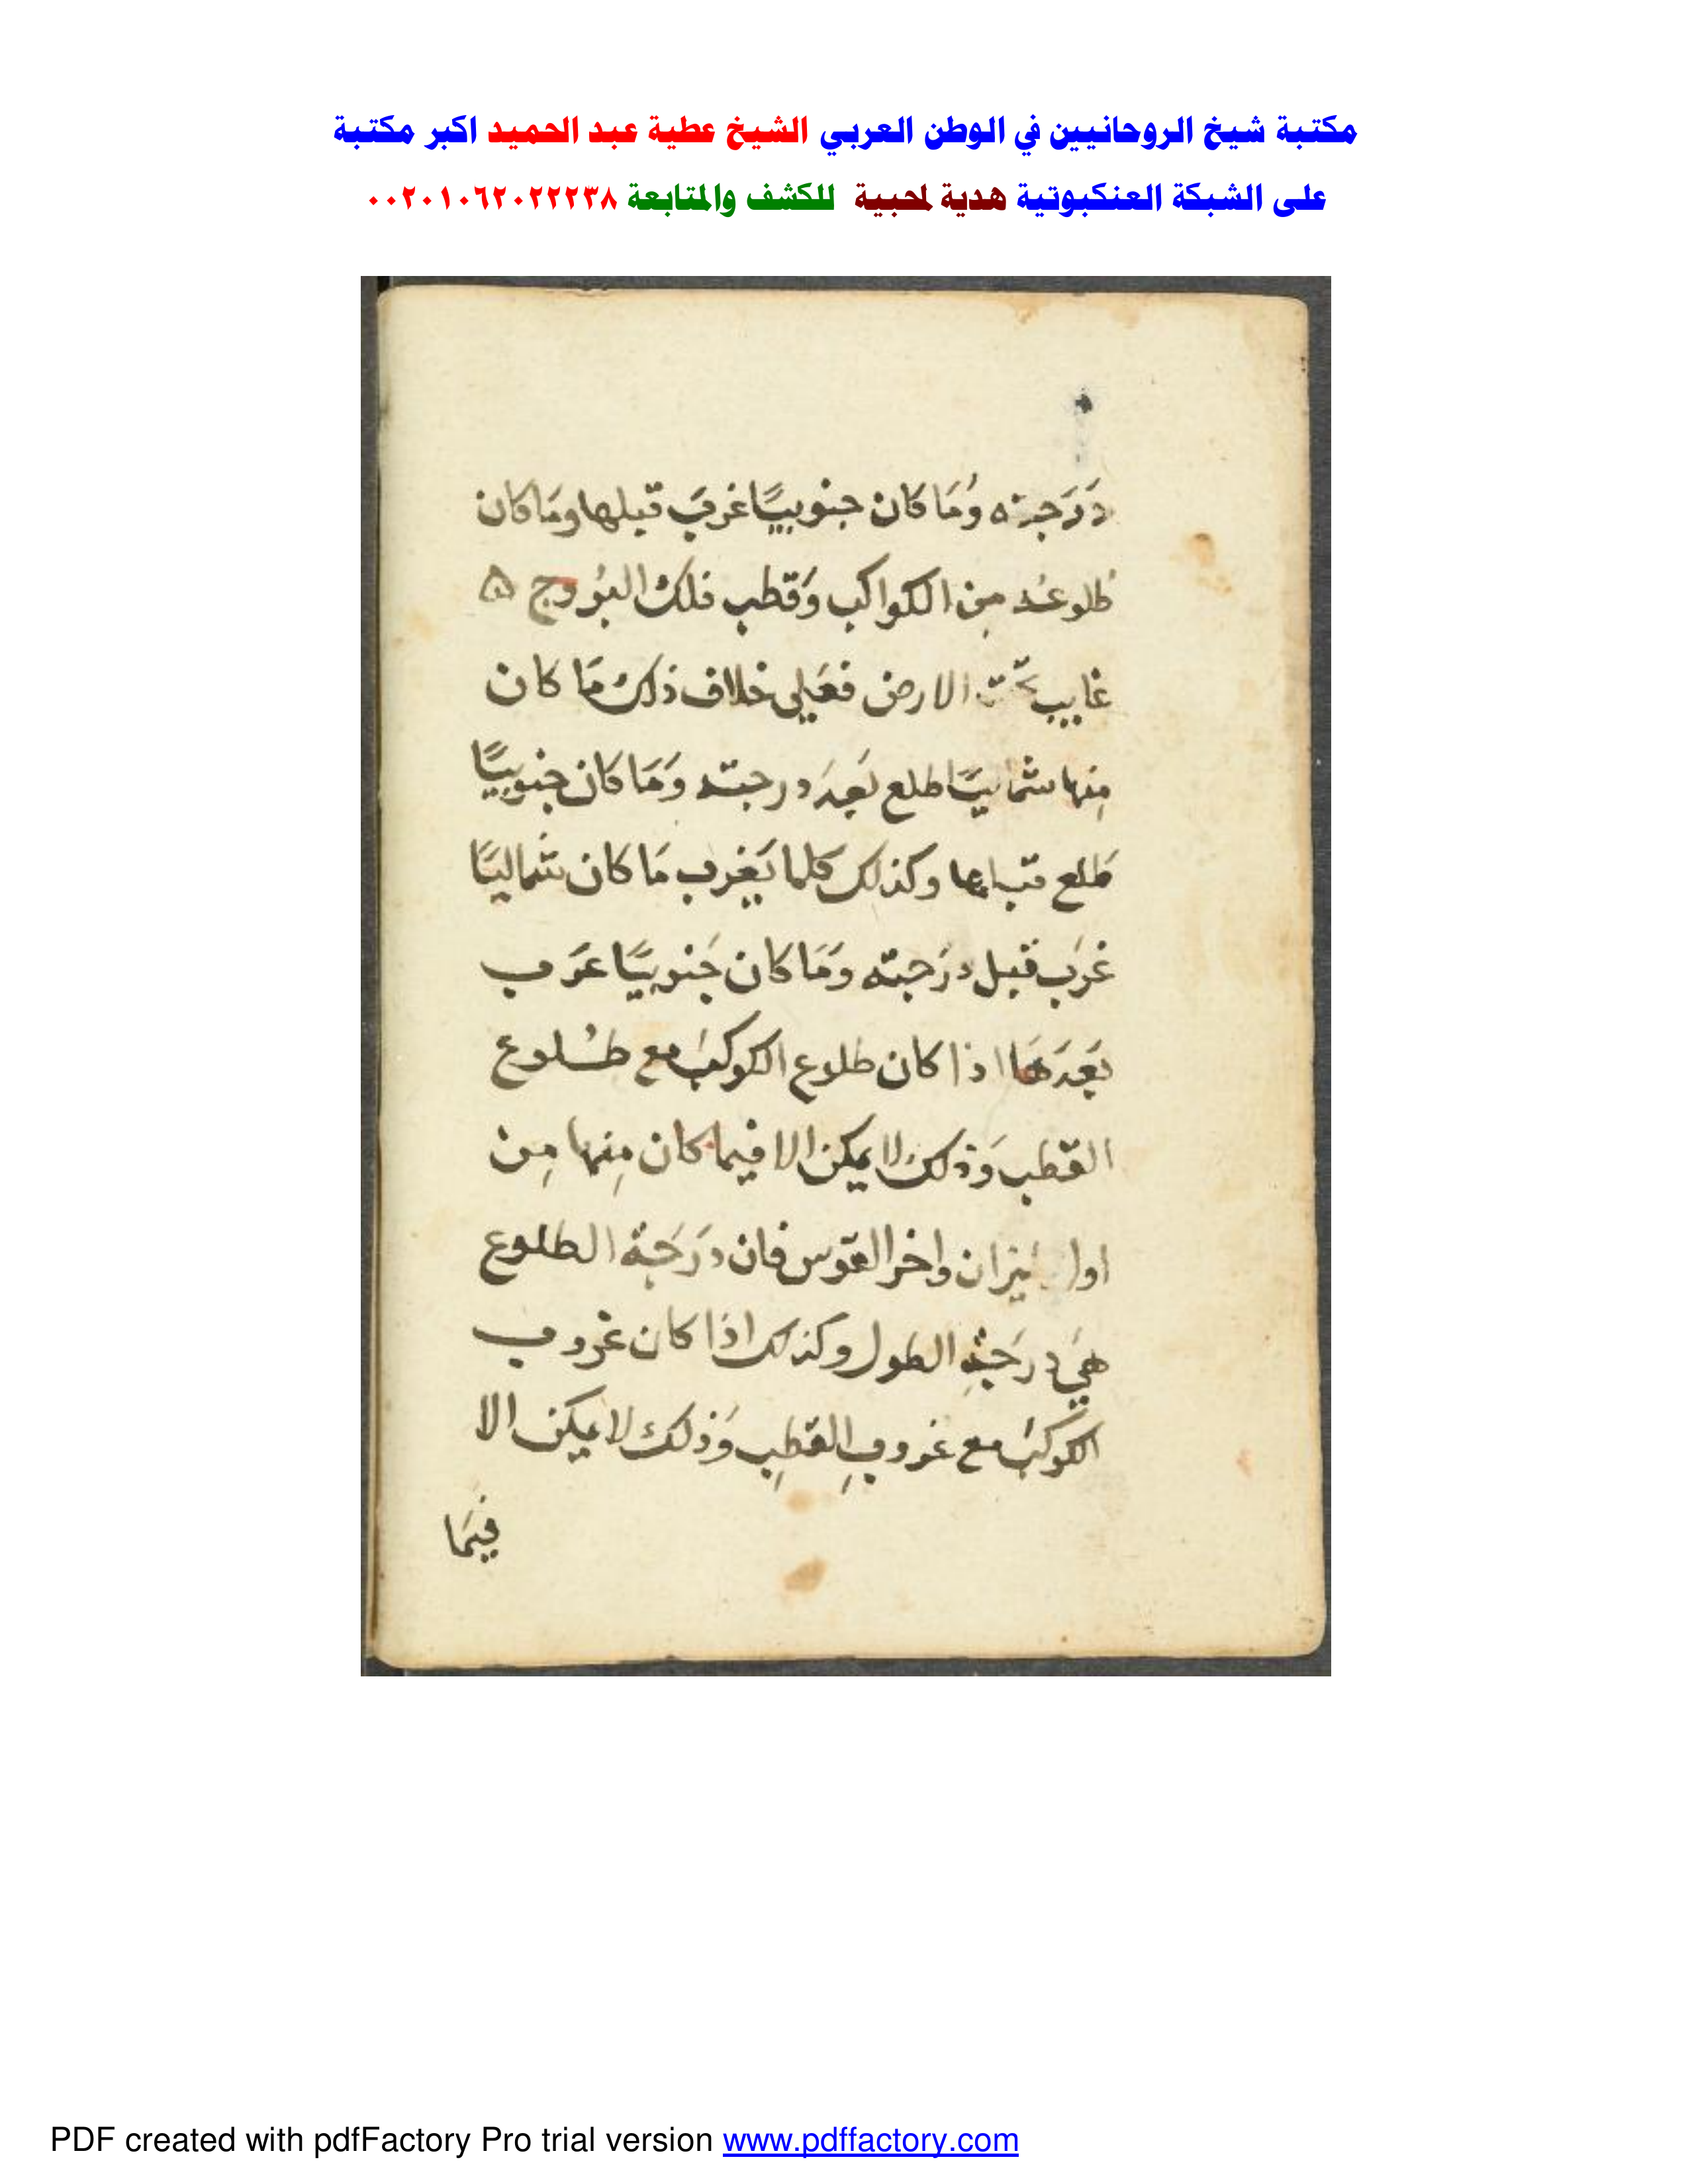 مكتبة شيخ الروحانيين في الوطن العربي الشيخ عطية عبد الحميد اكبر مكتبة
على الشبكة العنكبوتية هدية لمحبية للكشف والمتابعة ٠٠٢٠١٠٦٢٠٢٢٢٣٨
دَرَجته وَمَا كان جنوبيًا غربَ قبلها ومَا كان
طلوعُه مِن الكواكب وَقطب فلك البُروج ۵
غايب تحّت الارض فعَلى خلاف ذلك مَا كان
مِنها شماليًا طلع بَعدَ درجته وَمَا كان جنوبيًا
طَلع قبلها وكذلك كلما يَغرب مَا كان شماليًا
غرَب قبل درَجته وَمَا كان جَنوبيًا غرَب
بَعدَهَا اذا كان طلوع الكوكب مع طُلوع
القطب وَذلك لا يمكن الا فيما كان مِنها مِن
اول الميزان واخر القوس فان درَجَة الطلوع
هيَ درَجَة الطول وكذلك اذا كان غروب
الكوكب مع غروبِ القطبِ وَذلك لا يمكن الا
فيمَا
PDF created with pdfFactory Pro trial version www.pdffactory.com